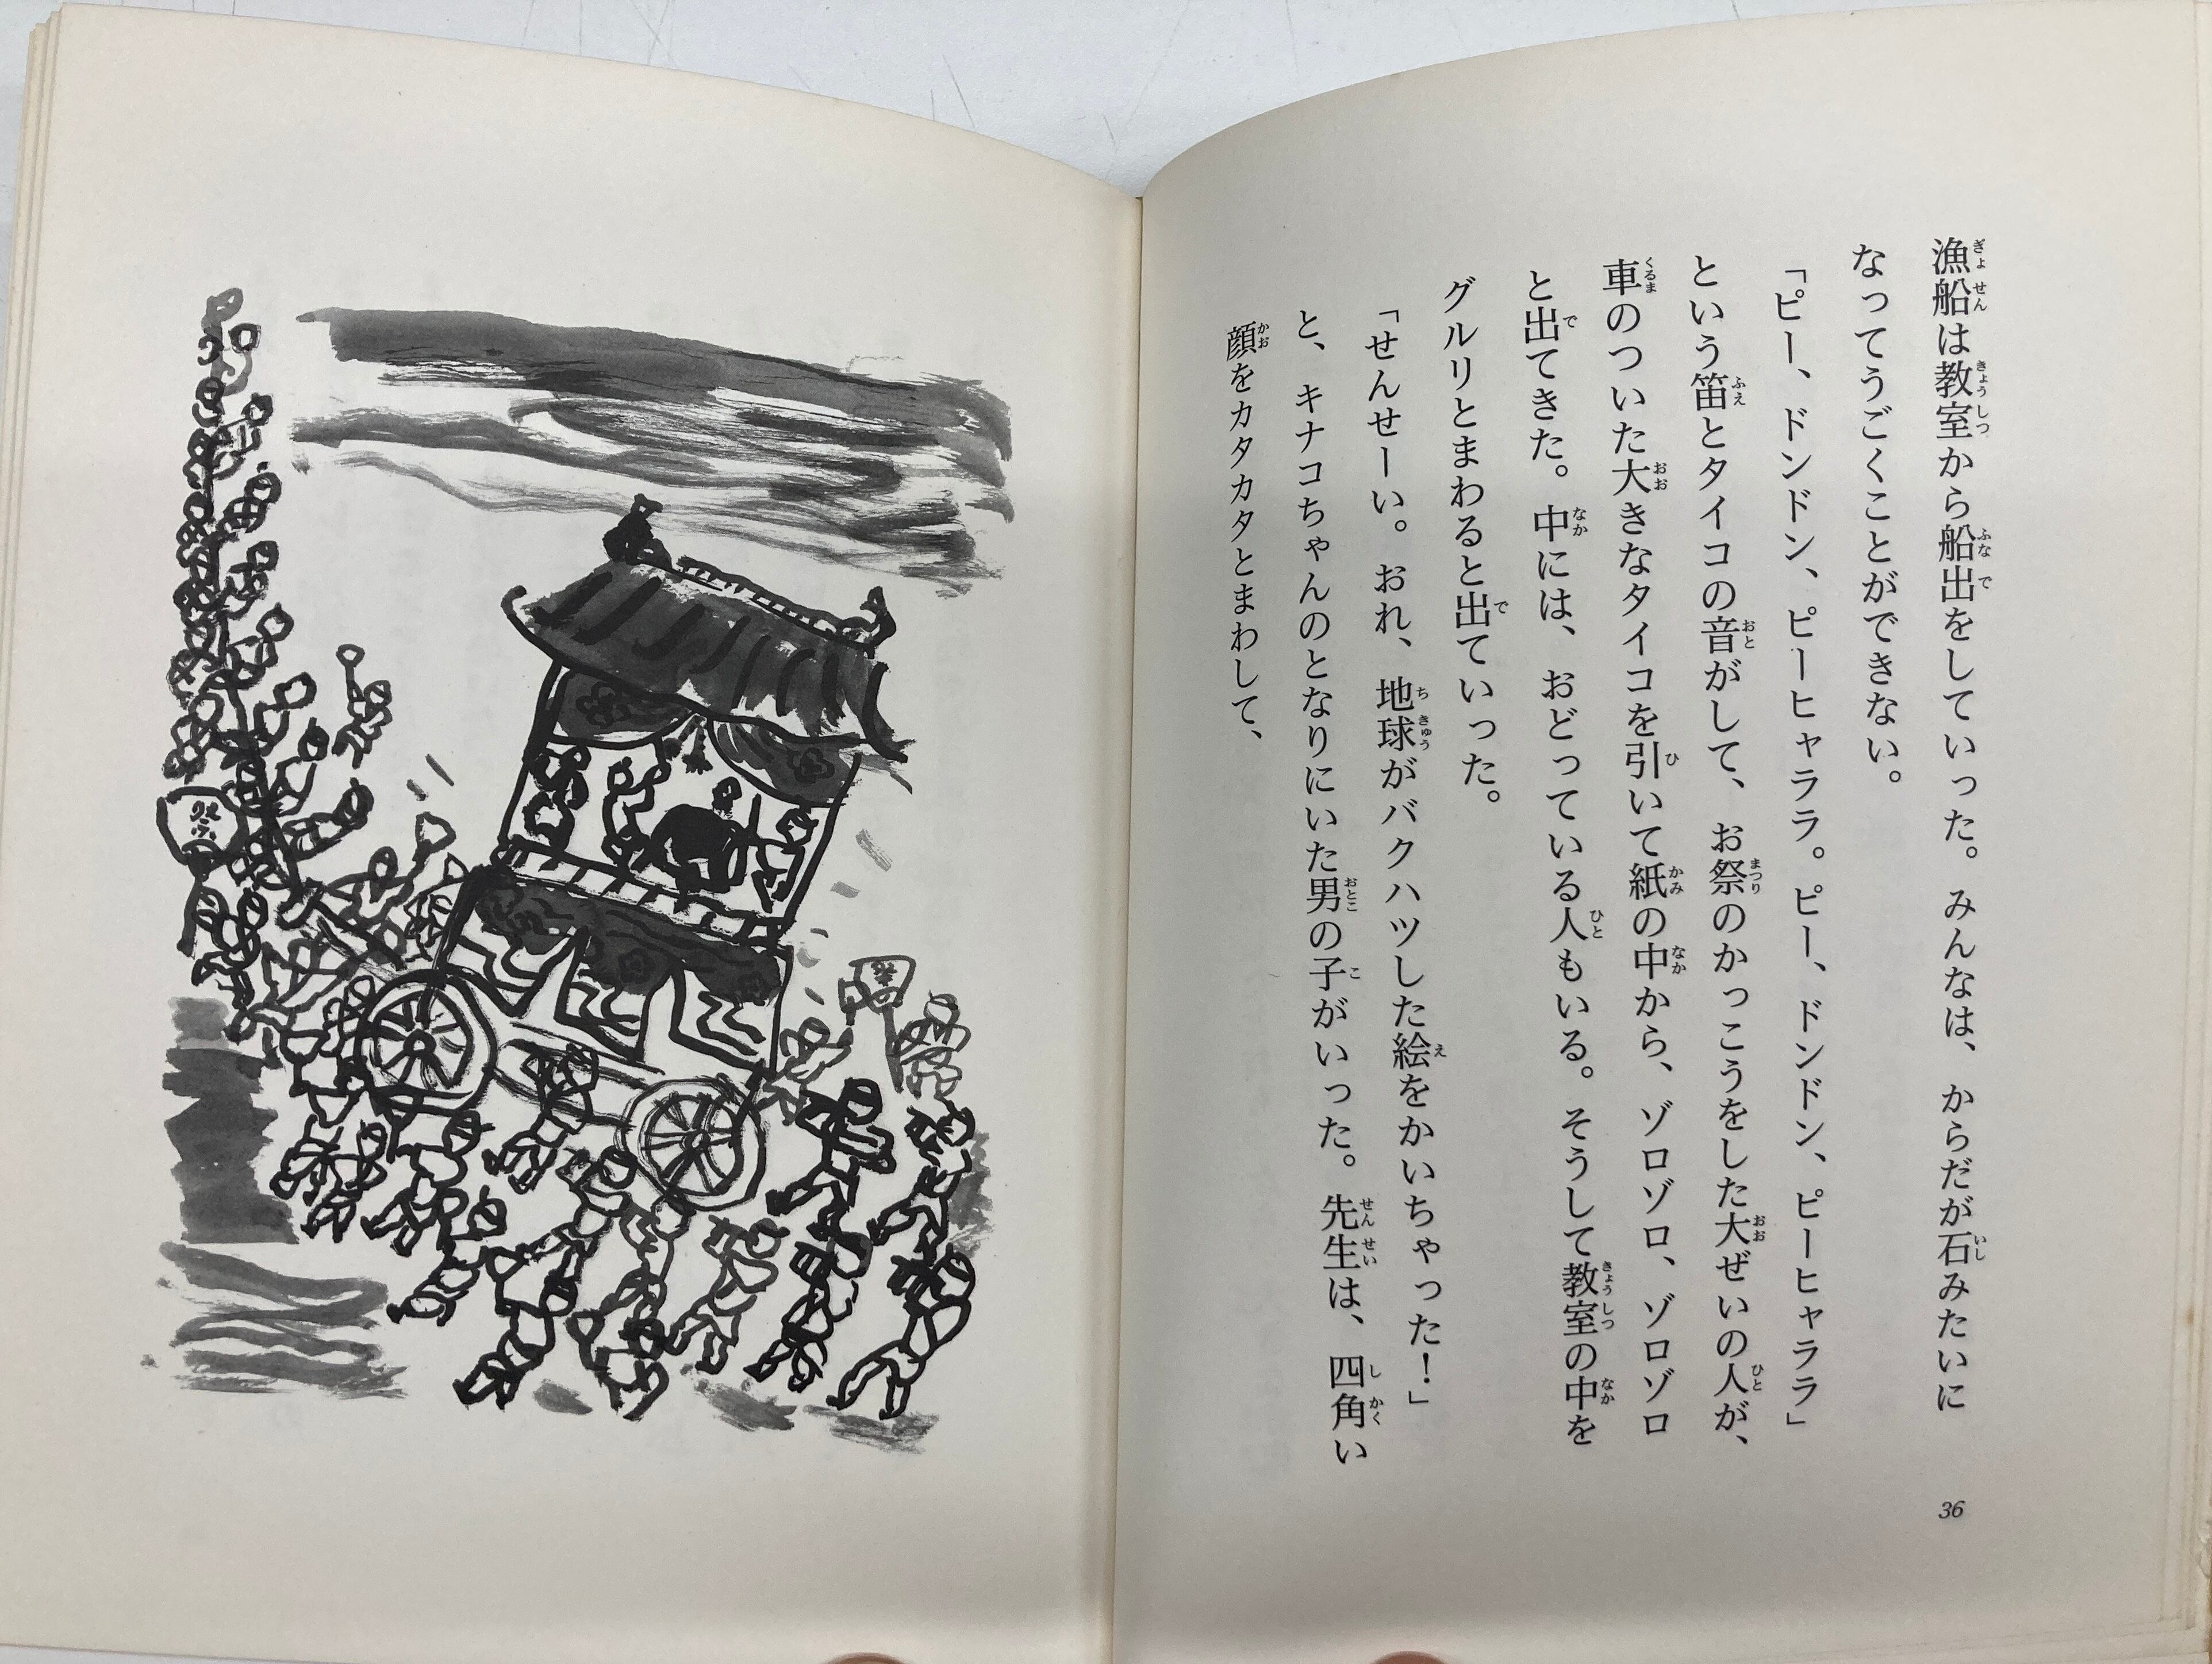 漁船は教室から船出をしていった。みんなは、からだが石みたいに
なってうごくことができない。
「ピー、ドンドン、ピーヒャララ。ピー、ドンドン、ピーヒャララ」
という笛とタイコの音がして、お祭のかっこうをした大ぜいの人が、
車のついた大きなタイコを引いて紙の中から、ゾロゾロ、ゾロゾロ
と出てきた。中には、おどっている人もいる。そうして教室の中を
グルリとまわると出ていった。
「せんせーい。おれ、地球がバクハツした絵をかいちゃった！」
と、キナコちゃんのとなりにいた男の子がいった。先生は、四角い
顔をカタカタとまわして、
36
祭